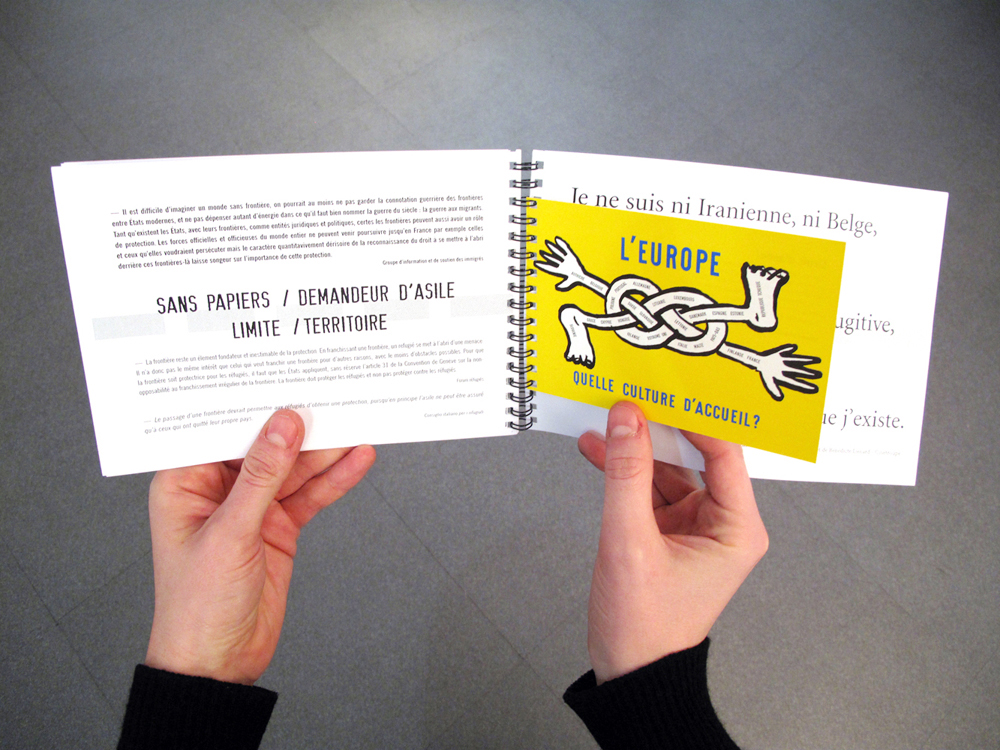 — Il est difficile d'imaginer un monde sans frontière, on pourrait au moins ne pas garder la connotation guerrière des frontières
entre États modernes, et ne pas dépenser autant d'énergie dans ce qu'il faut bien nommer la guerre du siècle : la guerre aux migrants.
Tant qu'existent les États, avec leurs frontières, comme entités juridiques et politiques, certes les frontières peuvent aussi avoir un rôle
de protection. Les forces officielles et officieuses du monde entier ne peuvent venir poursuivre jusqu'en France par exemple celles
et ceux qu'elles voudraient persécuter mais le caractère quantitavivement dérisoire de la reconnaissance du droit a se mettre a l'abri
derrière ces frontières-là laisse songeur sur l'importance de cette protection.
Groupe d'information et de soutien des immigrés
SANS PAPIERS / DEMANDEUR D'ASILE
LIMITE / TERRITOIRE
— La frontière reste un élément fondateur et inestimable de la protection. En franchissant une frontière, un réfugié se met à l'abri d'une menace.
Il n'a donc pas le même intérêt que celui qui veut franchir une frontière pour d'autres raisons, avec le moins d'obstacles possibles. Pour que
la frontière soit protectrice pour les réfugiés, il faut que les États appliquent, sans réserve l'article 31 de la Convention de Genève sur la non-
opposabilité au franchissement irrégulier de la frontière. La frontière doit protéger les réfugiés et non pas protéger contre les réfugiés.
Forum réfugiés
— Le passage d'une frontière devrait permettre aux réfugiés d'obtenir une protection, puisqu'en principe l'asile ne peut être accordé
qu'à ceux qui ont quitté leur propre pays.
Je ne suis ni Iranienne, ni Belge,
ugitive,
ue j'existe.
L'EUROPE
PORTUGAL
ALLEMAGNE
LITUANIE
LUXEMBOURG
DANEMARK
ESPAGNE
ESTONIE
RÉPUBLIQUE TCHÈQUE
ITALIE
MALTE
FINLANDE
FRANCE
QUELLE CULTURE D'ACCUEIL?